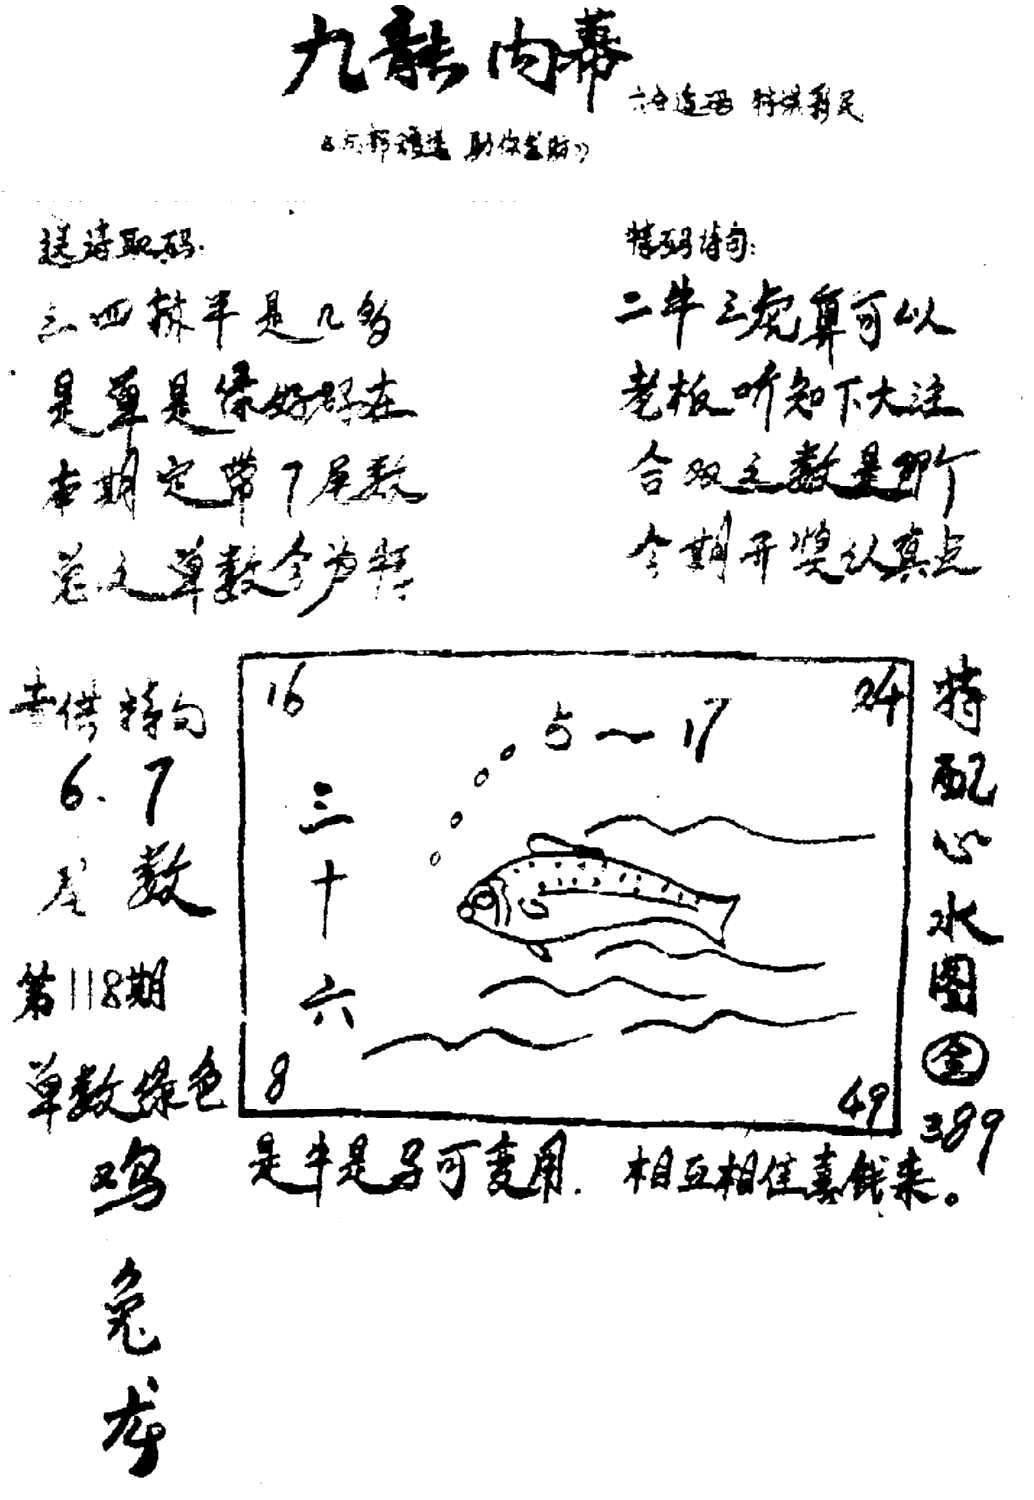 九龍内幕
六合造福 特供彩民
助你发财》
送诗取码.
三四拼半是几多
是单是绿好好在
本期定带7尾数
总之单数今为特
特码诗句:
二牛三虎算可以
老板听知下大注
合双之数是那个
今期开奖认真点
壹供特句
6.7
尾数
第118期
单数绿色
鸡
兔
龙
16
24
5～17
三十六
8
49
特配心水图
金
389
是牛是马可变用. 相互相佳喜钱来。